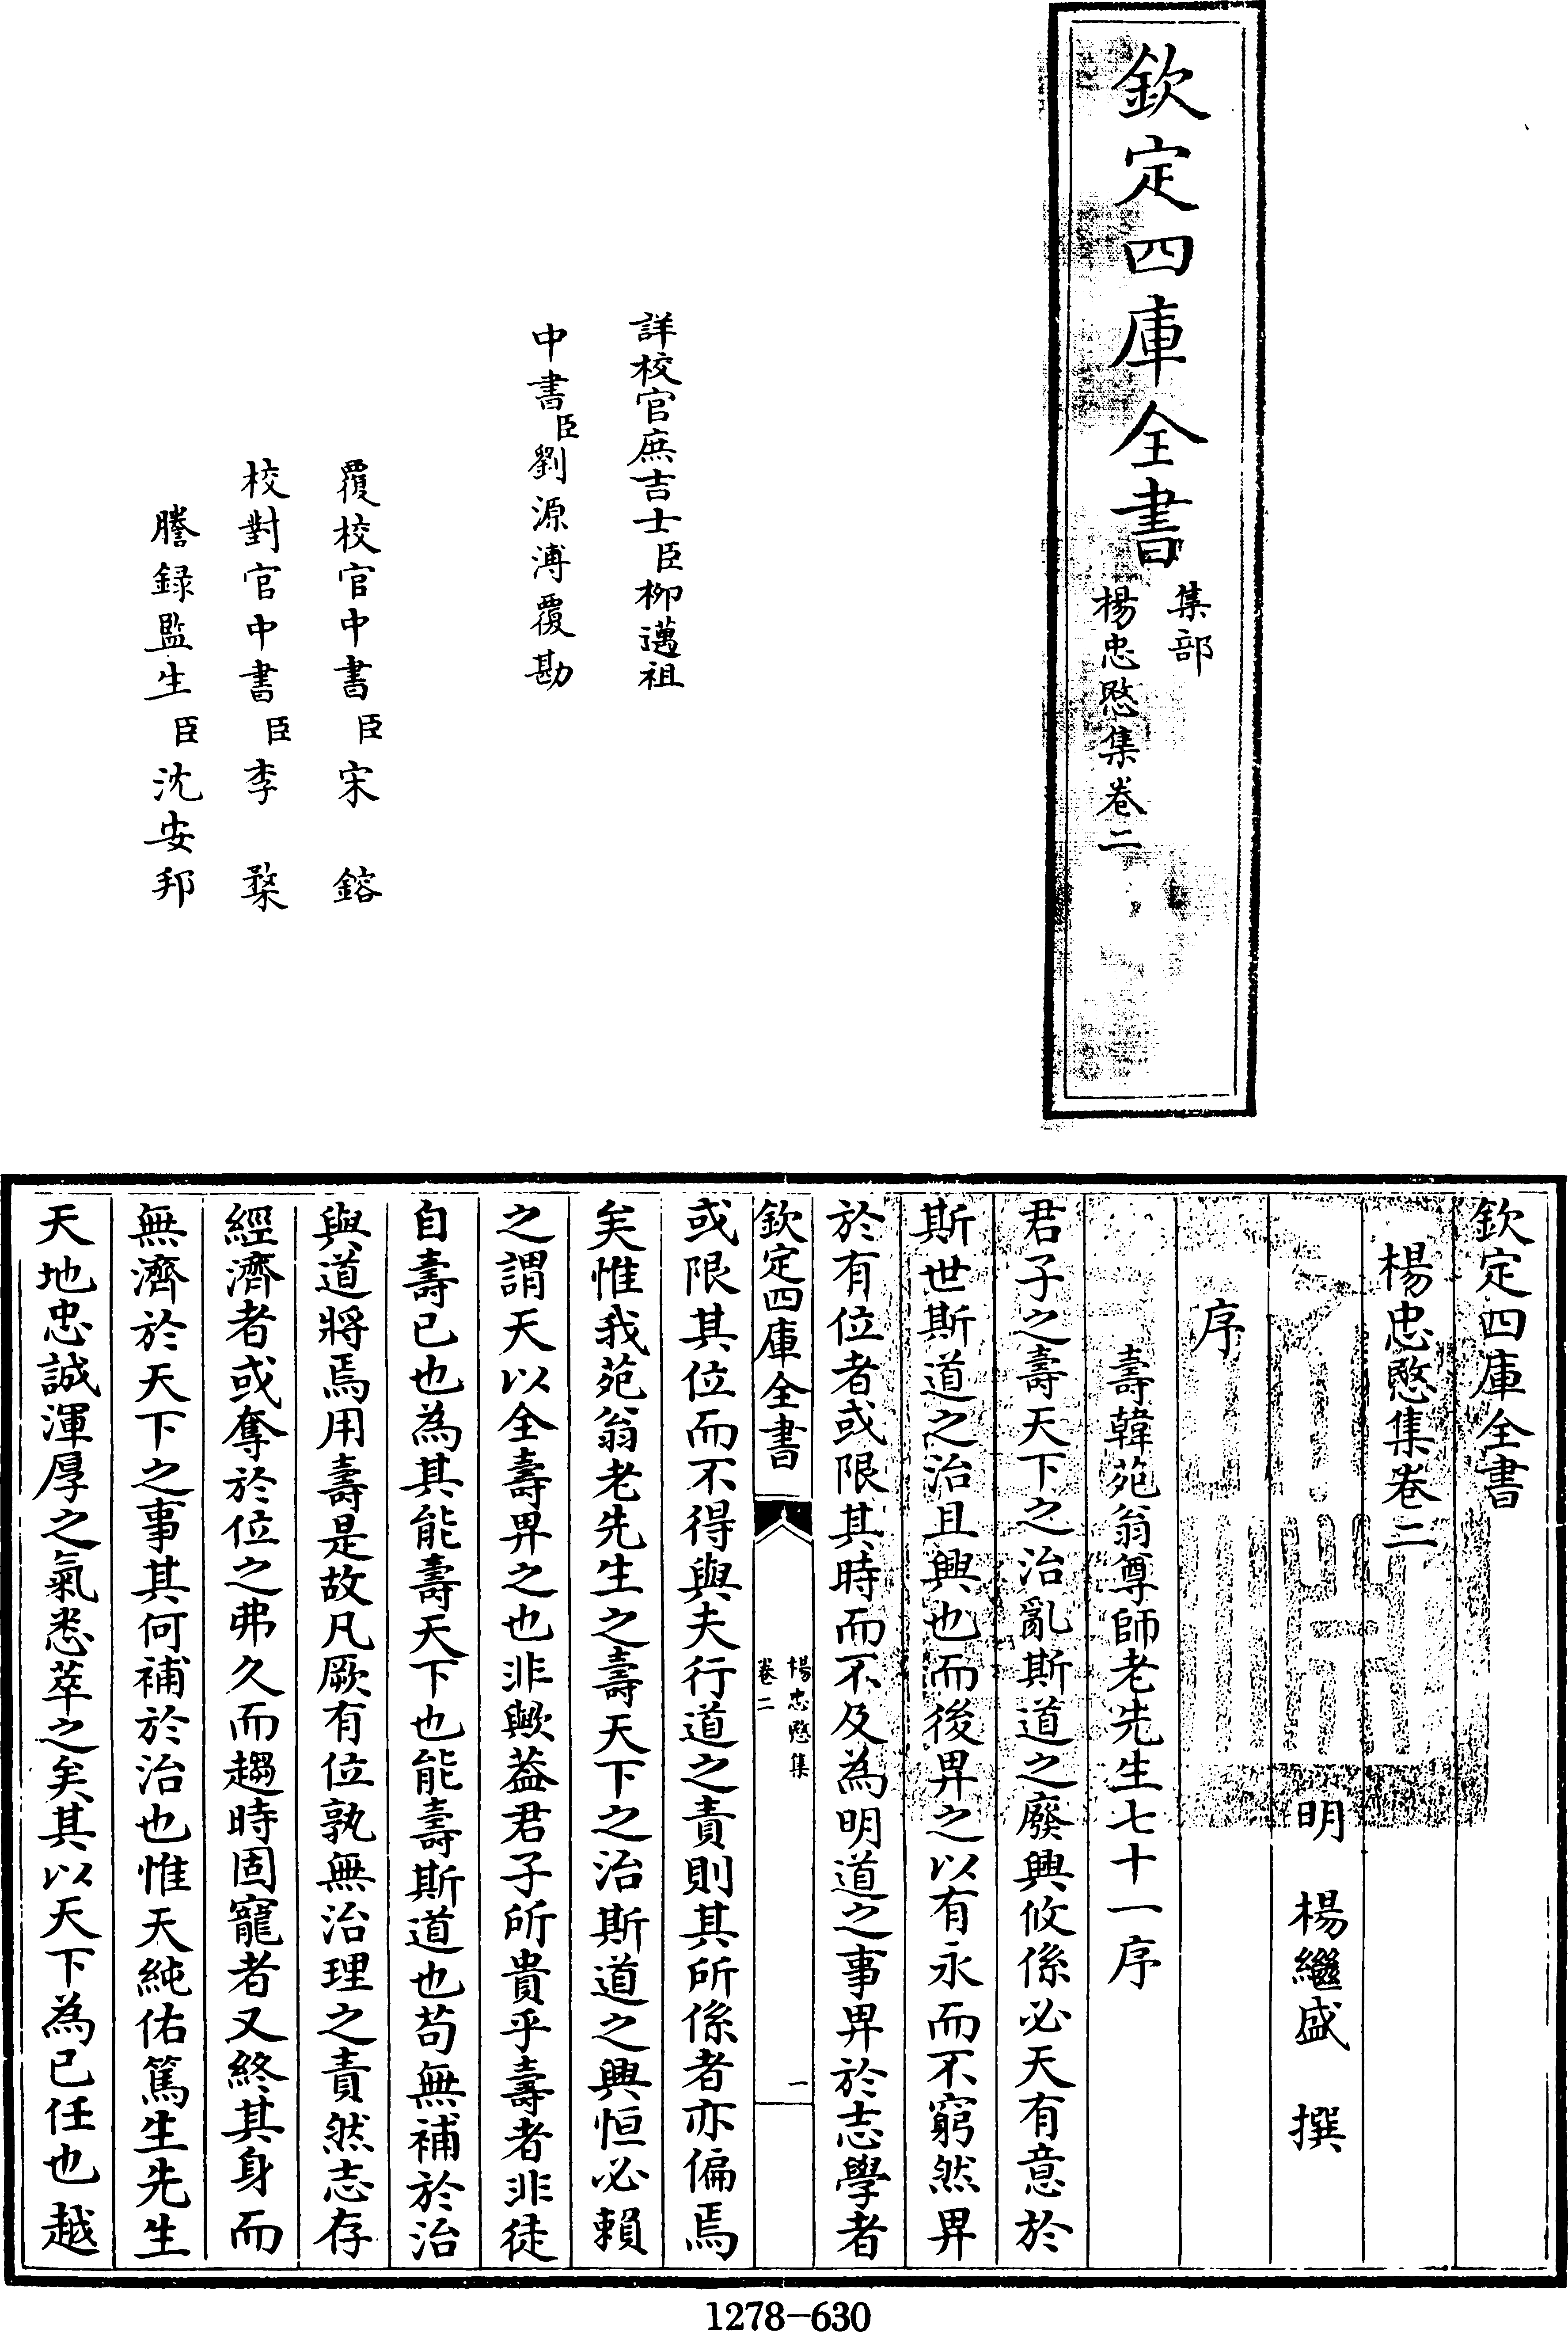 欽定四庫全書
集部
楊忠愍集卷二
詳校官庶吉士臣柳邁祖
中書臣劉源溥覆勘
覆校官中書臣宋鎔
校對官中書臣李楘
謄録監生臣沈安邦
欽定四庫全書
楊忠愍集卷二
明 楊繼盛 撰
序
壽韓苑翁尊師老先生七十一序
君子之壽天下之治亂斯道之廢興攸係必天有意於
斯世斯道之治且興也而後畀之以有永而不窮然畀
於有位者或限其時而不及為明道之事畀於志學者
欽定四庫全書
楊忠愍集
卷二
一
或限其位而不得與夫行道之責則其所係者亦偏焉
矣惟我苑翁老先生之壽天下之治斯道之興恒必賴
之謂天以全壽畀之也非歟葢君子所貴乎壽者非徒
自壽已也為其能壽天下也能壽斯道也茍無補於治
與道將焉用壽是故凡厥有位孰無治理之責然志存
經濟者或奪於位之弗久而趨時固寵者又終其身而
無濟於天下之事其何補於治也惟天純佑篤生先生
天地忠誠渾厚之氣悉萃之矣其以天下為已任也越
1278-630